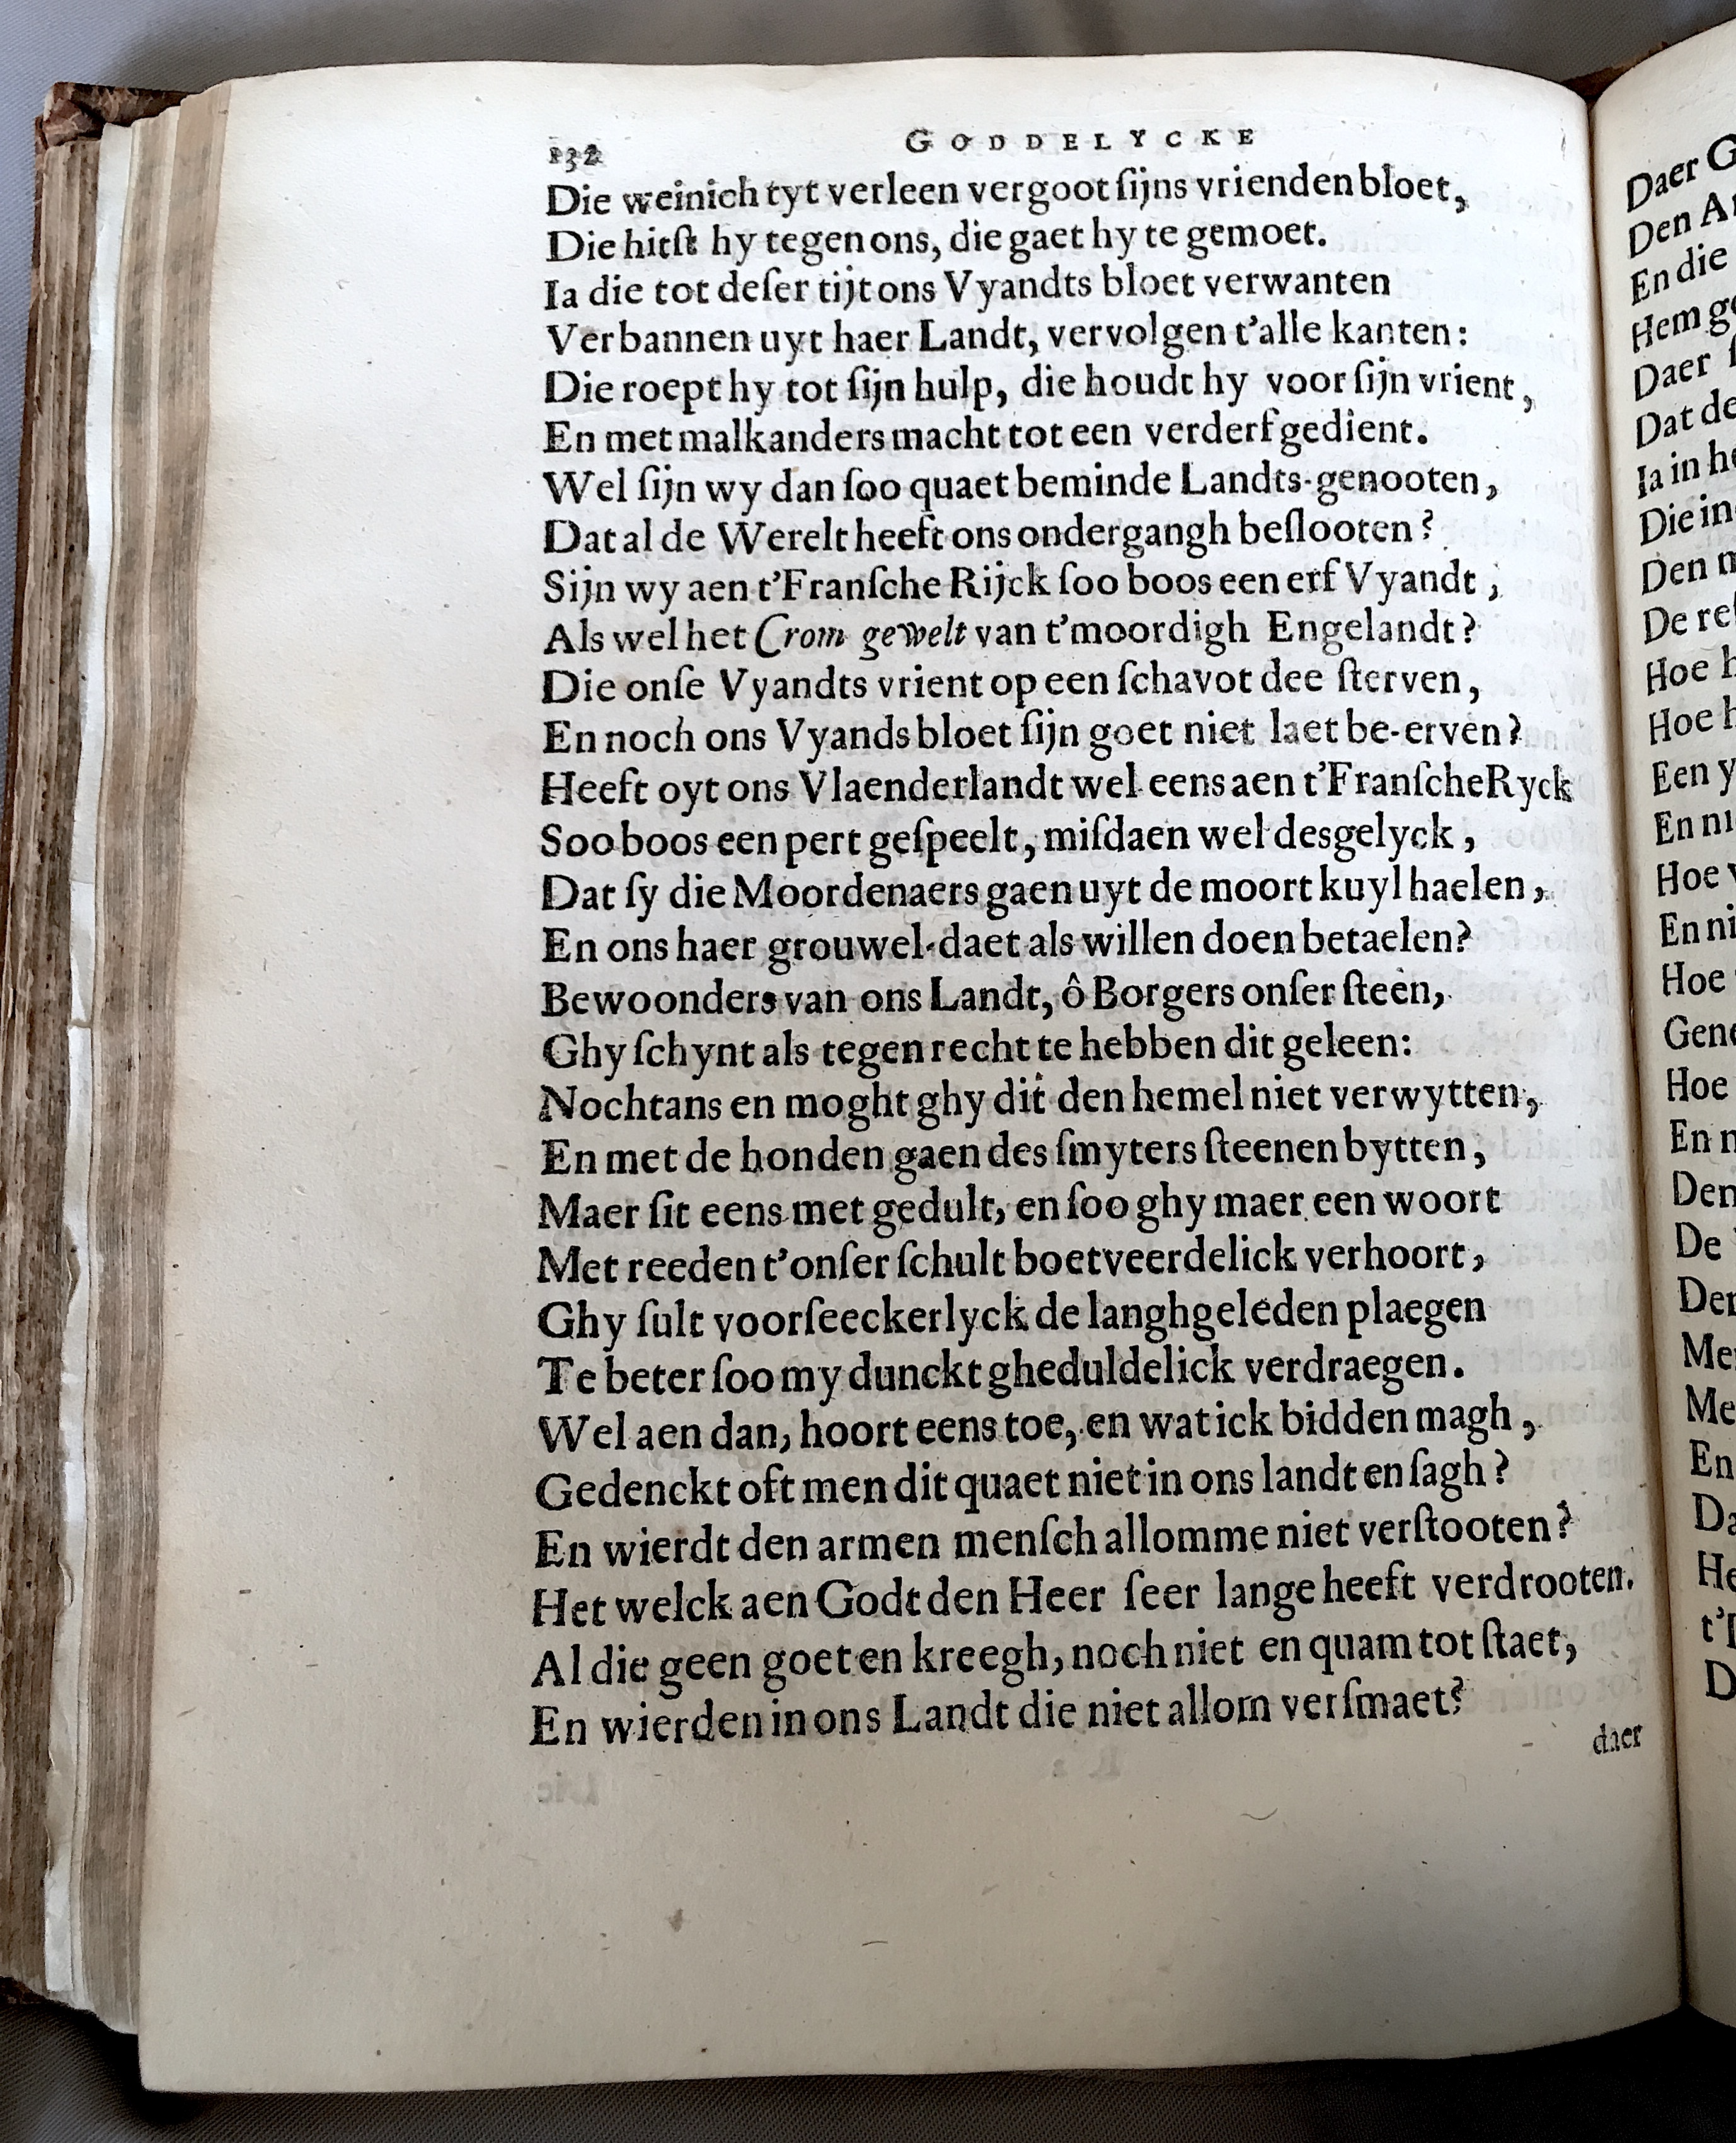 132 GODDELYCKE
Die weinich tyt verleen vergoot ſijns vrienden bloet,
Die hitſt hy tegen ons, die gaet hy te gemoet.
Ia die tot deſer tijt ons Vyandts bloet verwanten
Verbannen uyt haer Landt, vervolgen t'alle kanten:
Die roept hy tot ſijn hulp, die houdt hy voor ſijn vrient,
En met malkanders macht tot een verderf gedient.
Wel ſijn wy dan ſoo quaet beminde Landts-genooten,
Dat al de Werelt heeft ons ondergangh beſlooten?
Sijn wy aen t'Franſche Rijck ſoo boos een erf Vyandt,
Als wel het Crom gewelt van t'moordigh Engelandt?
Die onſe Vyandts vrient op een ſchavot dee ſterven,
En noch ons Vyands bloet ſijn goet niet laet be-erven?
Heeft oyt ons Vlaenderlandt wel eens aen t'Franſche Ryck
Soo boos een pert geſpeelt, miſdaen wel desgelyck,
Dat ſy die Moordenaers gaen uyt de moort kuyl haelen,
En ons haer grouwel-daet als willen doen betaelen?
Bewoonders van ons Landt, ô Borgers onſer ſteen,
Ghy ſchynt als tegen recht te hebben dit geleen:
Nochtans en moght ghy dit den hemel niet verwytten,
En met de honden gaen des ſmyters ſteenen bytten,
Maer ſit eens met gedult, en ſoo ghy maer een woort
Met reeden t'onſer ſchult boetveerdelick verhoort,
Ghy ſult voorſeeckerlyck de langhgeleden plaegen
Te beter ſoo my dunckt gheduldelick verdraegen.
Wel aen dan, hoort eens toe, en wat ick bidden magh,
Gedenckt oft men dit quaet niet in ons landt en ſagh?
En wierdt den armen menſch allomme niet verſtooten?
Het welck aen Godt den Heer ſeer lange heeft verdrooten.
Al die geen goet en kreegh, noch niet en quam tot ſtaet,
En wierden in ons Landt die niet allom verſmaet?
daer
Daer
Den
En die
Daer
Dat de
Ia in
Die in
Den
De
Hoe
Hoe
Een
En
Hoe
En
Hoe
Hoe
En
De
En